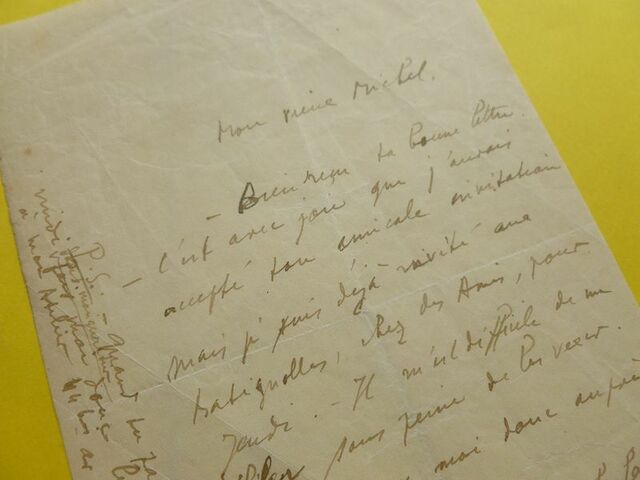 Mon vieux Michel.
– Bien reçu ta bonne lettre.
– C'est avec joie que j'aurais
accepté ton amicale invitation
mais je suis déjà invité aux
Batignolles, chez des Amis, pour
Jeudi. – Il m'est difficile de me
sous peine de les vexer.
moi donc auprès
P.S. – Quand tu
donc
à mon atelier